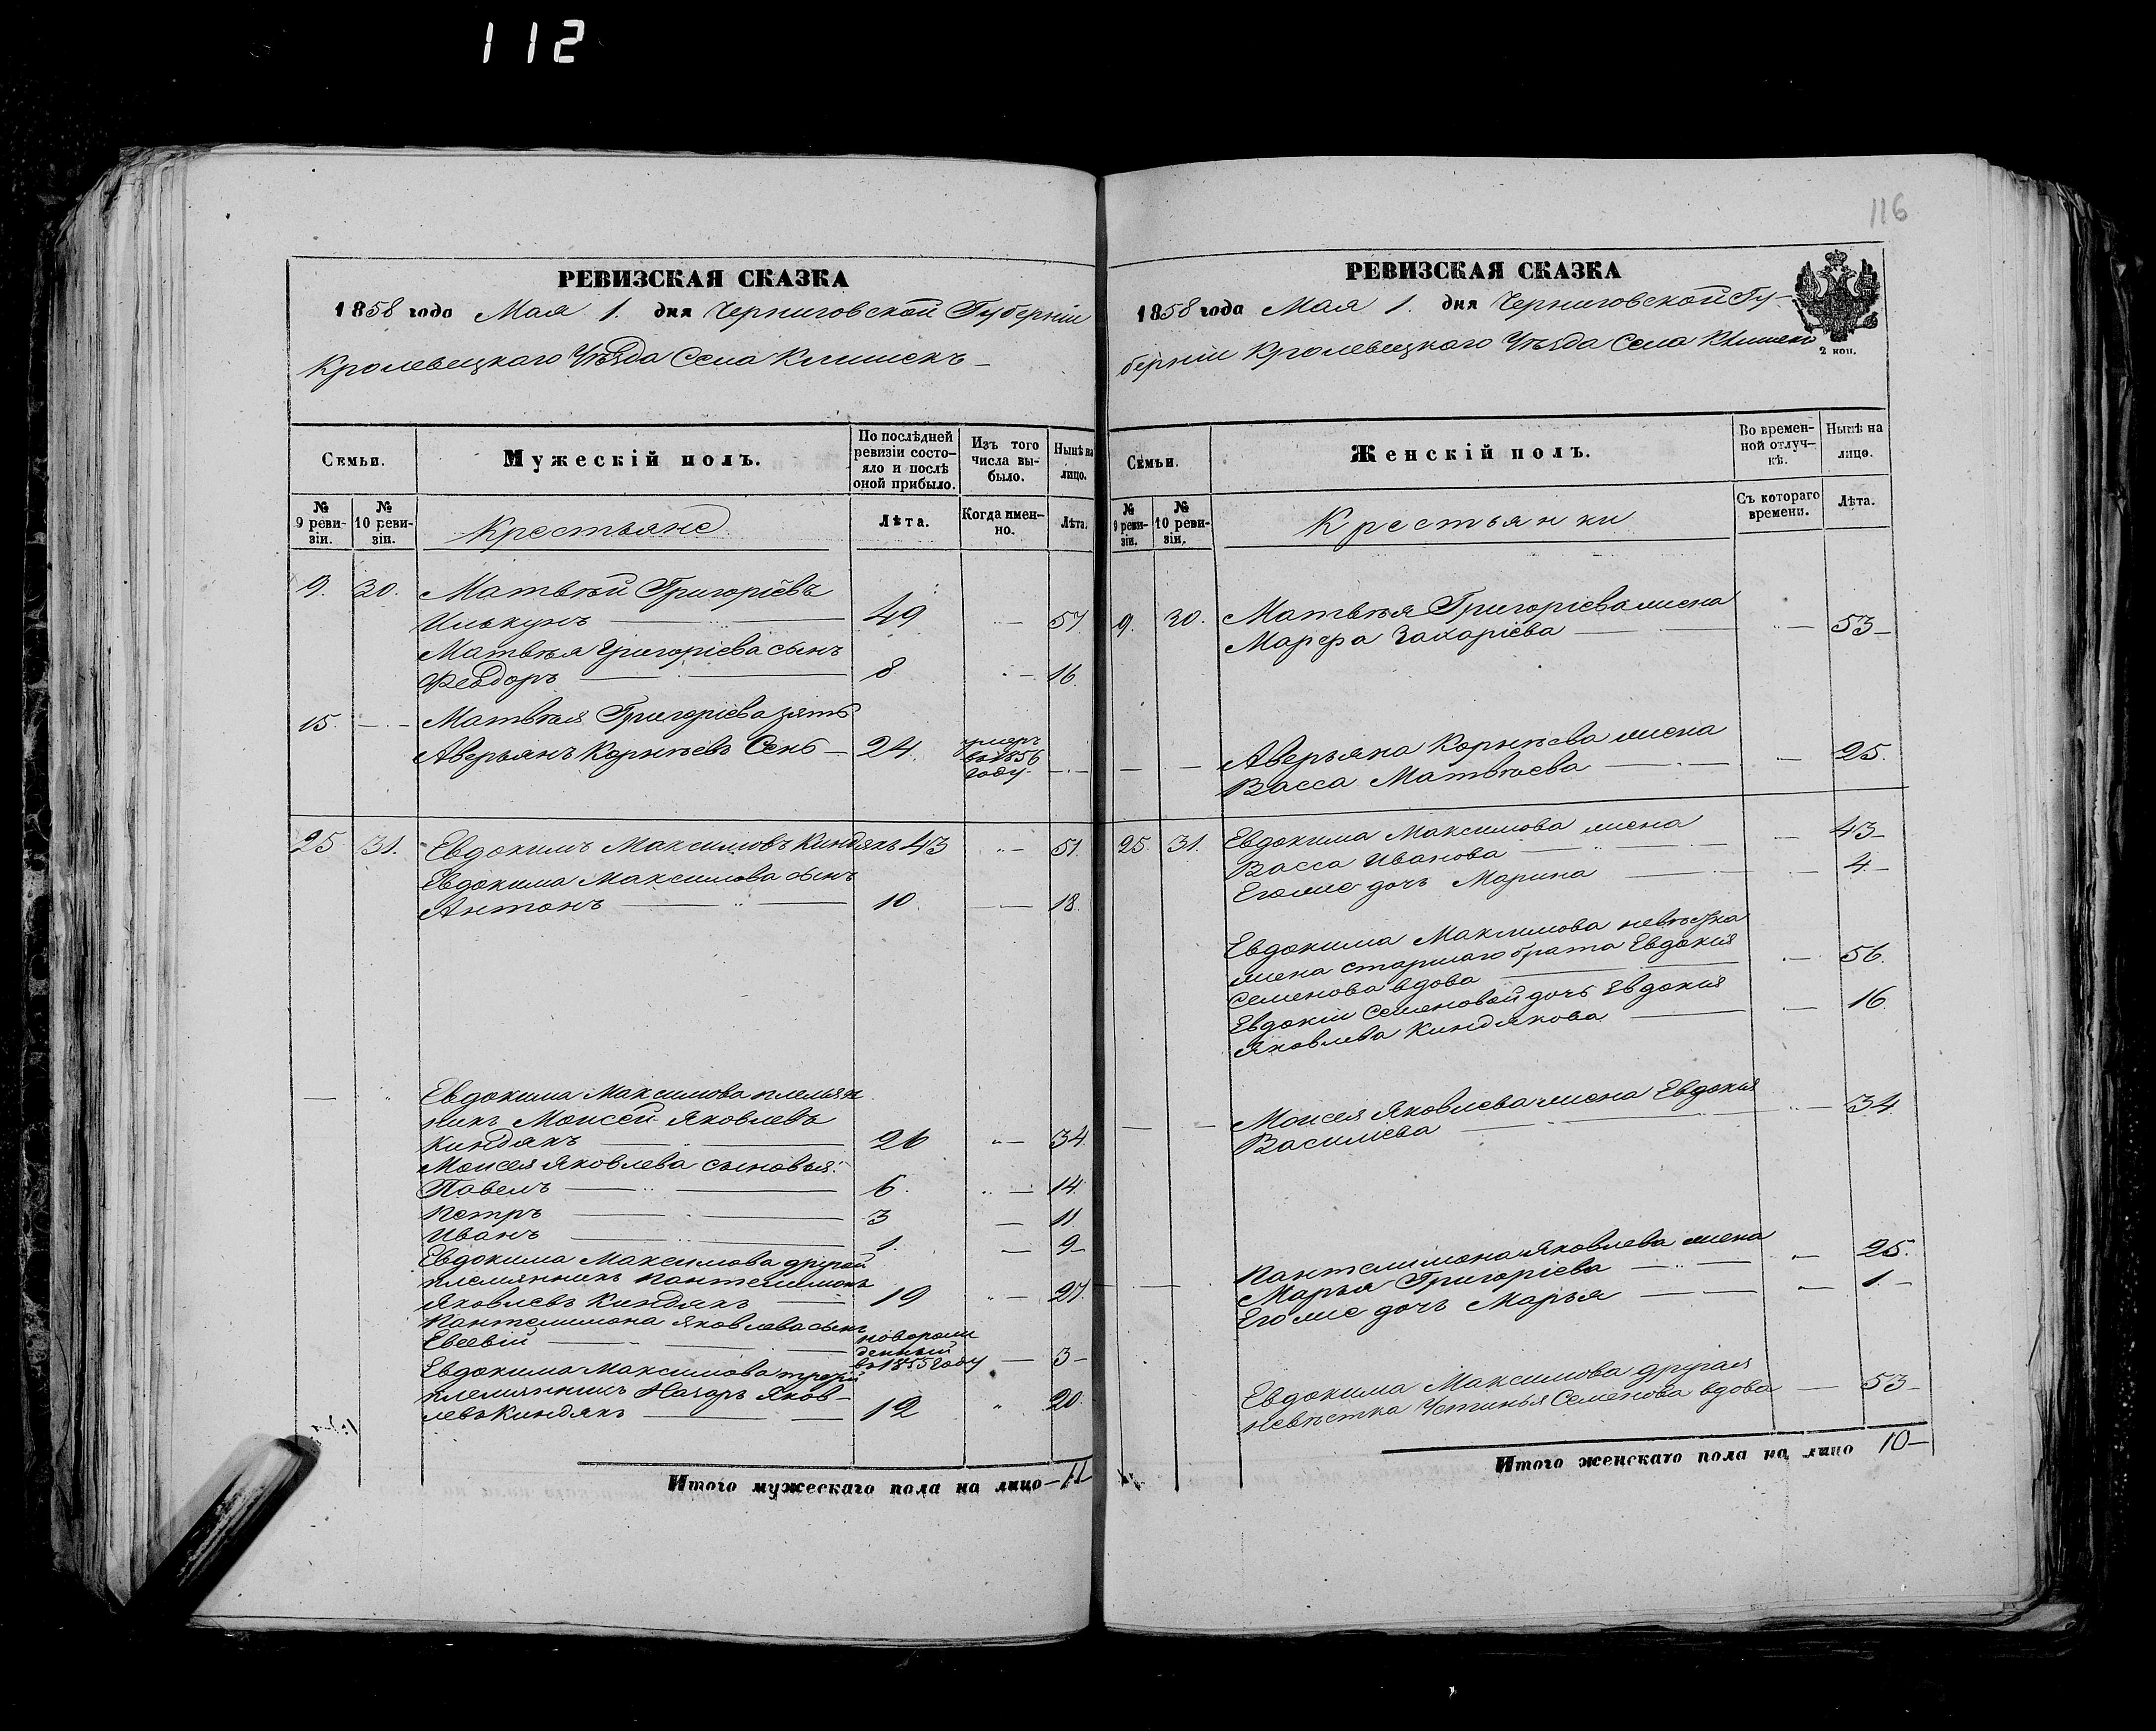 112
116
РЕВИЗСКАЯ СКАЗКА
1858 года Мая 1. дня Черниговской Губерніи
Кролевецкаго Уѣзда Села Клишекъ
Семьи.
Мужескій полъ.
По послѣдней ревизіи состо-
яло и послѣ
оной прибыло.
Изъ того
числа вы-
было.
Нынѣ на
лицо.
№
9 реви-
зіи.
№
10 реви-
зіи.
Крестьяне
Лѣта.
Когда имен-
но.
Лѣта.
9. 30. Матвѣй Григоріевъ
Илькунъ 49 57
Матвѣя Григоріева сынъ
Феодоръ 8 16.
15. Матвѣя Григоріева зять
Аверьянъ Корнѣевъ Сень 24. умеръ
въ 1856
году
25 31. Евдокимъ Максимовъ Киндякъ 43 51.
Евдокима Максимова сынъ
Антонъ 10. 18.
Евдокима Максимова племян
никъ Моисей Яковлевъ
Киндякъ 26 34.
Моисея Яковлева сыновья:
Павелъ 6. 14.
Петръ 3 11
Иванъ 1. 9
Евдокима Максимова другой
племянникъ Пантелимонъ
Яковлевъ Киндякъ 19 27.
Пантелимона Яковлева сынъ
Евсевій новорож
денный
въ 1855 году 3
Евдокима Максимова третій
племянникъ Назаръ Яков-
левъ Киндякъ 12 20.
Итого мужескаго пола на лицо 11
РЕВИЗСКАЯ СКАЗКА
1858 года Мая 1. дня Черниговской Гу-
берніи Кролевецкаго Уѣзда Села Клишек
2 коп.
Семьи.
Женскій полъ.
Во времен-
ной отлуч-
кѣ.
Нынѣ на
лицо.
№
9 реви-
зіи.
№
10 реви-
зіи.
Крестьянки
Съ котораго
времени.
Лѣта.
9. 30. Матвѣя Григоріева жена
Марфа Захаріева 53
Аверьяна Корнѣева жена
Васса Матвѣева 25.
25. 31. Евдокима Максимова жена
Васса Иванова 43
Его же дочь Марина 4
Евдокима Максимова невѣстка
жена старшаго брата Евдокія
Семенова вдова 56.
Евдокіи Семеновой дочь Евдокія
Яковлева Киндякова 16.
Моисея Яковлева жена Евдокія
Василіева 34
Пантелимона Яковлева жена
Марья Григоріева 25.
Его же дочь Марья 1.
Евдокима Максимова другая
невѣстка Устинья Семенова вдова 53
Итого женскаго пола на лицо 10